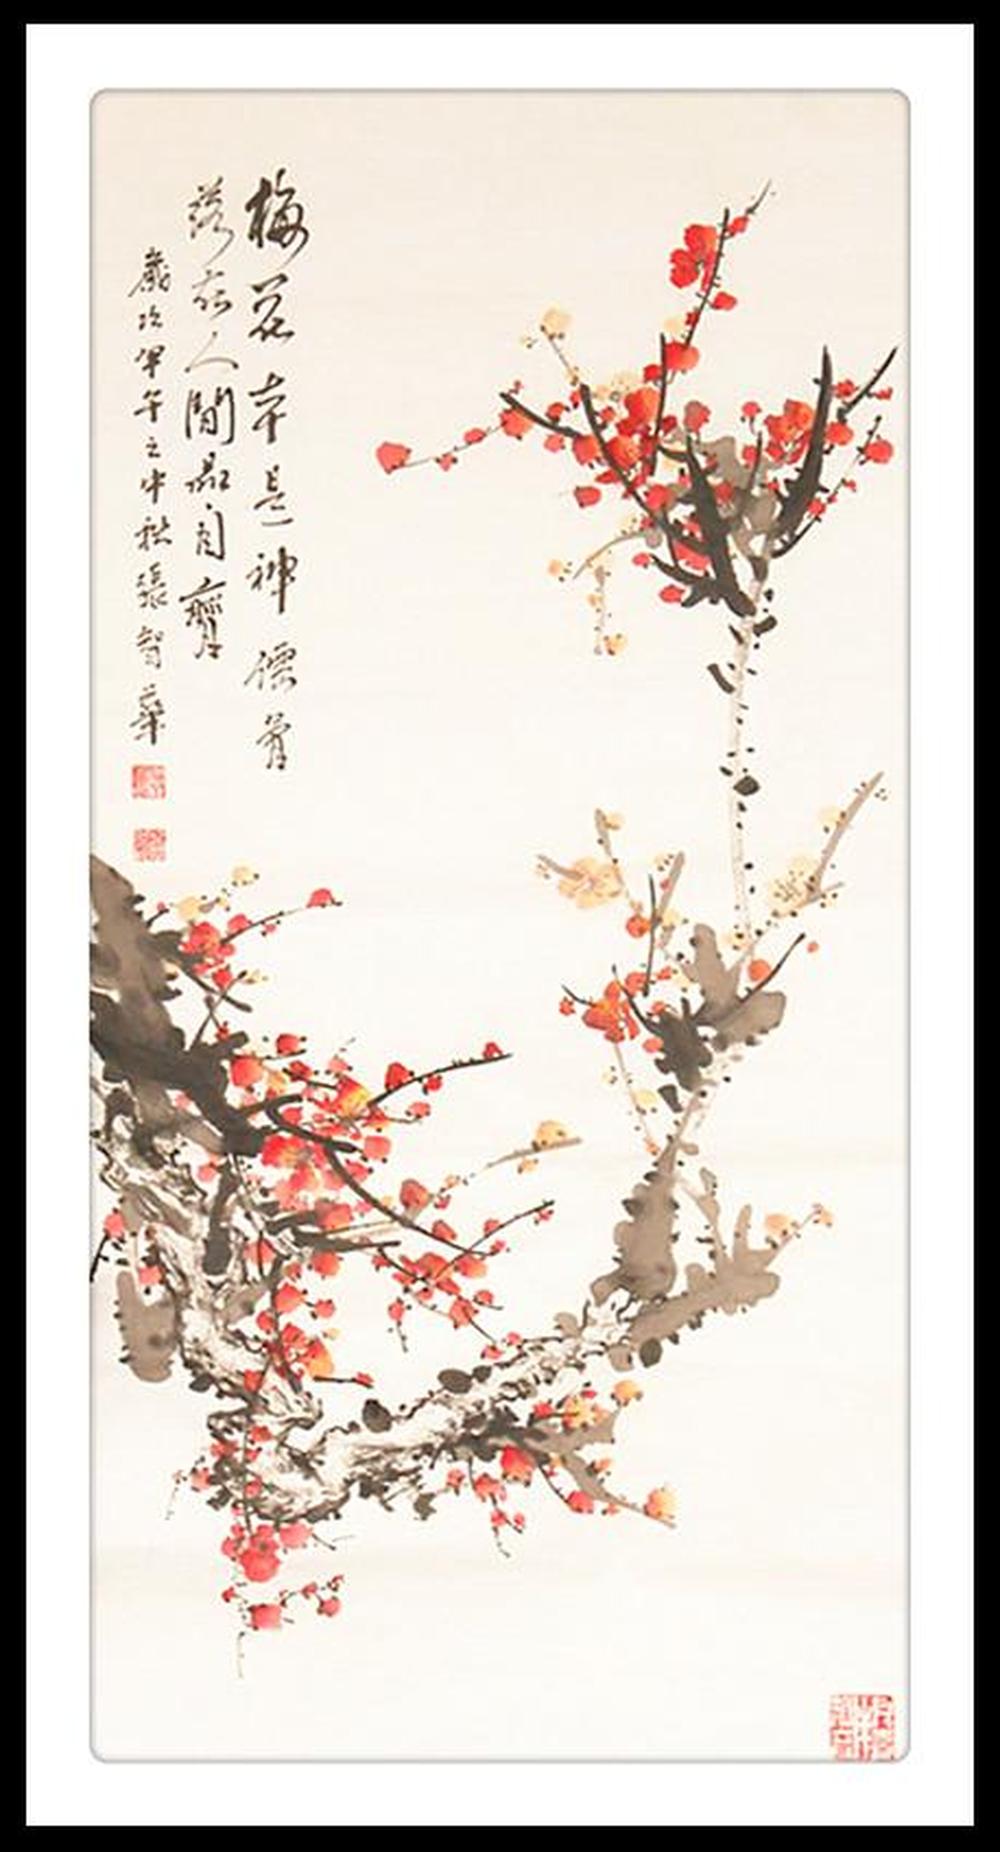 梅花本是神僊骨
落在人間品自
歲次甲午之中秋張智華